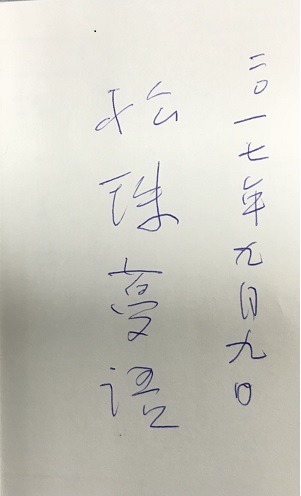 二〇一七年九月九日
松珠蔓语